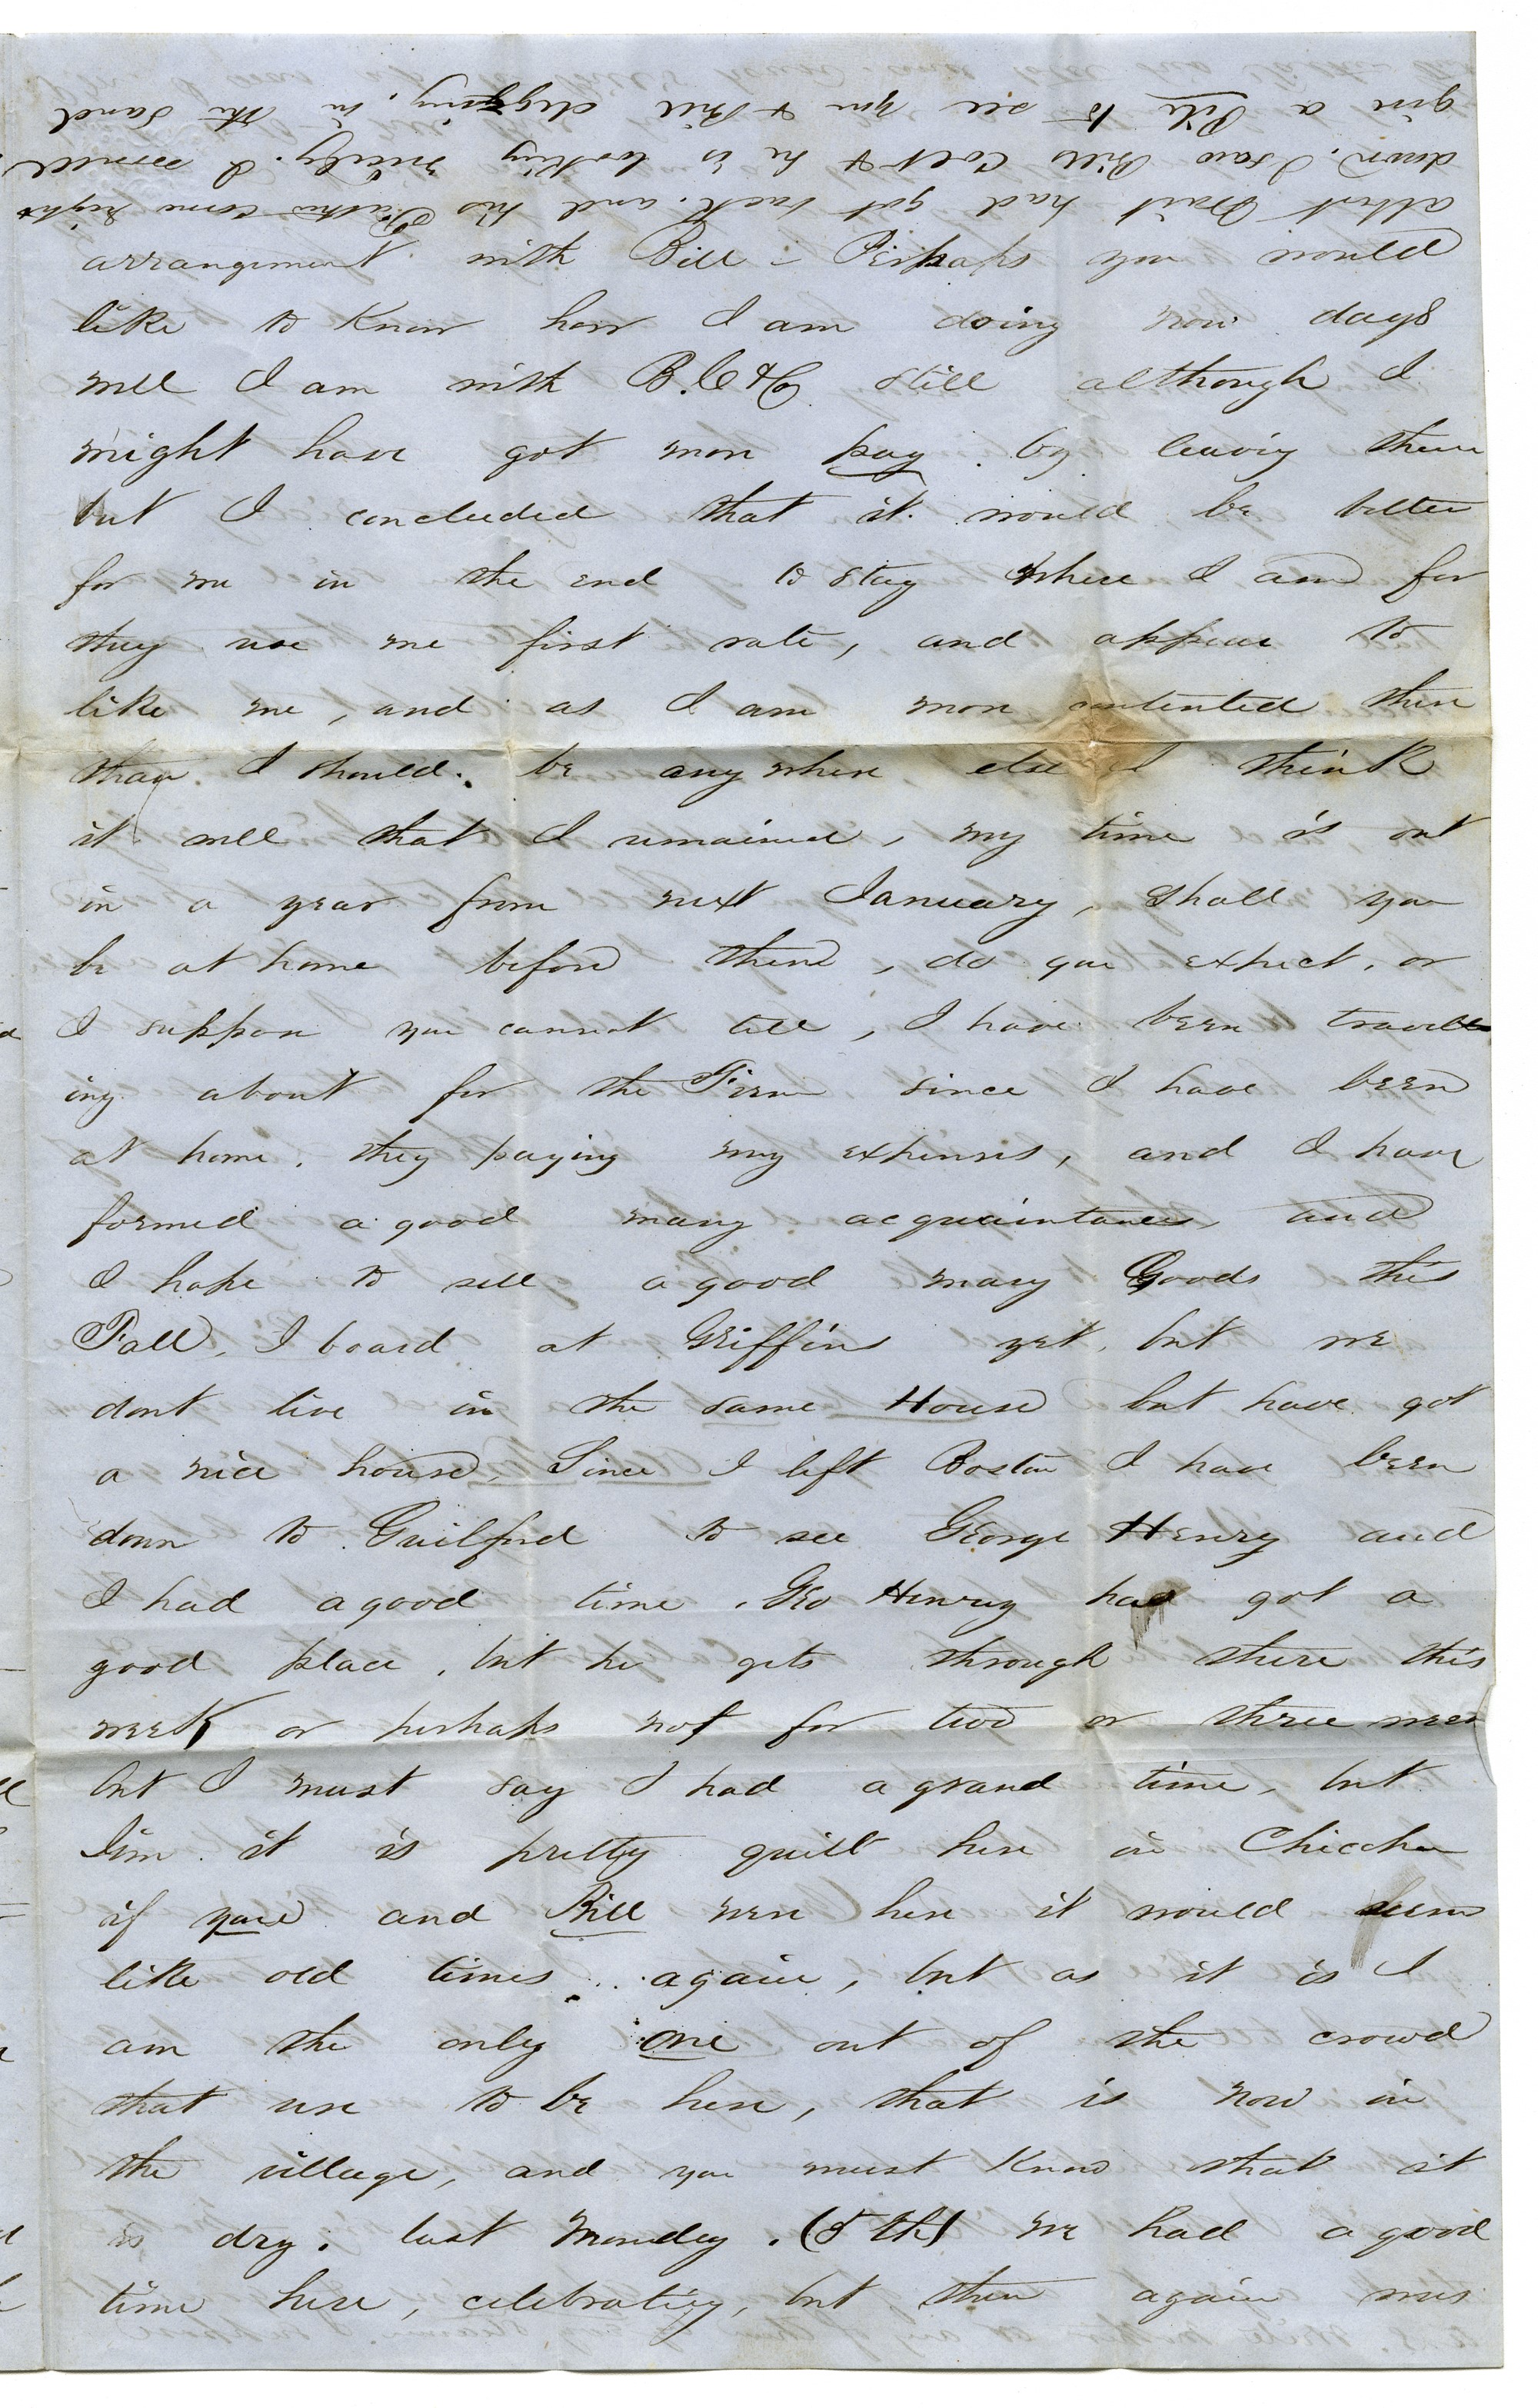 albut Brait had got back. and his Father come right
down, I saw Bills Colt & he is looking nicely. I would
give a Pile to see you & Bill digging, in the sand
arrangement with Bill - Perhaps you would
like to know how I am doing now days
well I am with B. C & Co still although I
might have got more pay by leaving them
but I concluded that it would be better
for me in the end to stay where I am for
they use me first rate, and appear to
like me, and as I am more contented there
than I should be any where else I think
it well that I remained, my time is out
in a year from next January, Shall you
be at home before then, do you expect, or
I suppose you cannot tell, I have been travell
ing about for the Firm since I have been
at home. they paying my expenses, and I have
formed a good many acquaintances and
I hope to sell a good many Goods this
Fall, I board at Griffins yet, but we
dont live in the same House but have got
a nice house, Since I left Boston I have been
down to Guilford to see George Henry and
I had a good time. Geo Henry has got a
good place, but he gets through there this
week or perhaps not for two or three wee
but I must say I had a grand time, but
Jim it is pretty quiet here in Chicohee
if you and Bill were here it would seem
like old times again, but as it is I
am the only one out of the crowd
that use to be here, that is now in
the village, and you must know that it
is dry. last Monday. (5th) we had a good
time here, celebrating, but then again was